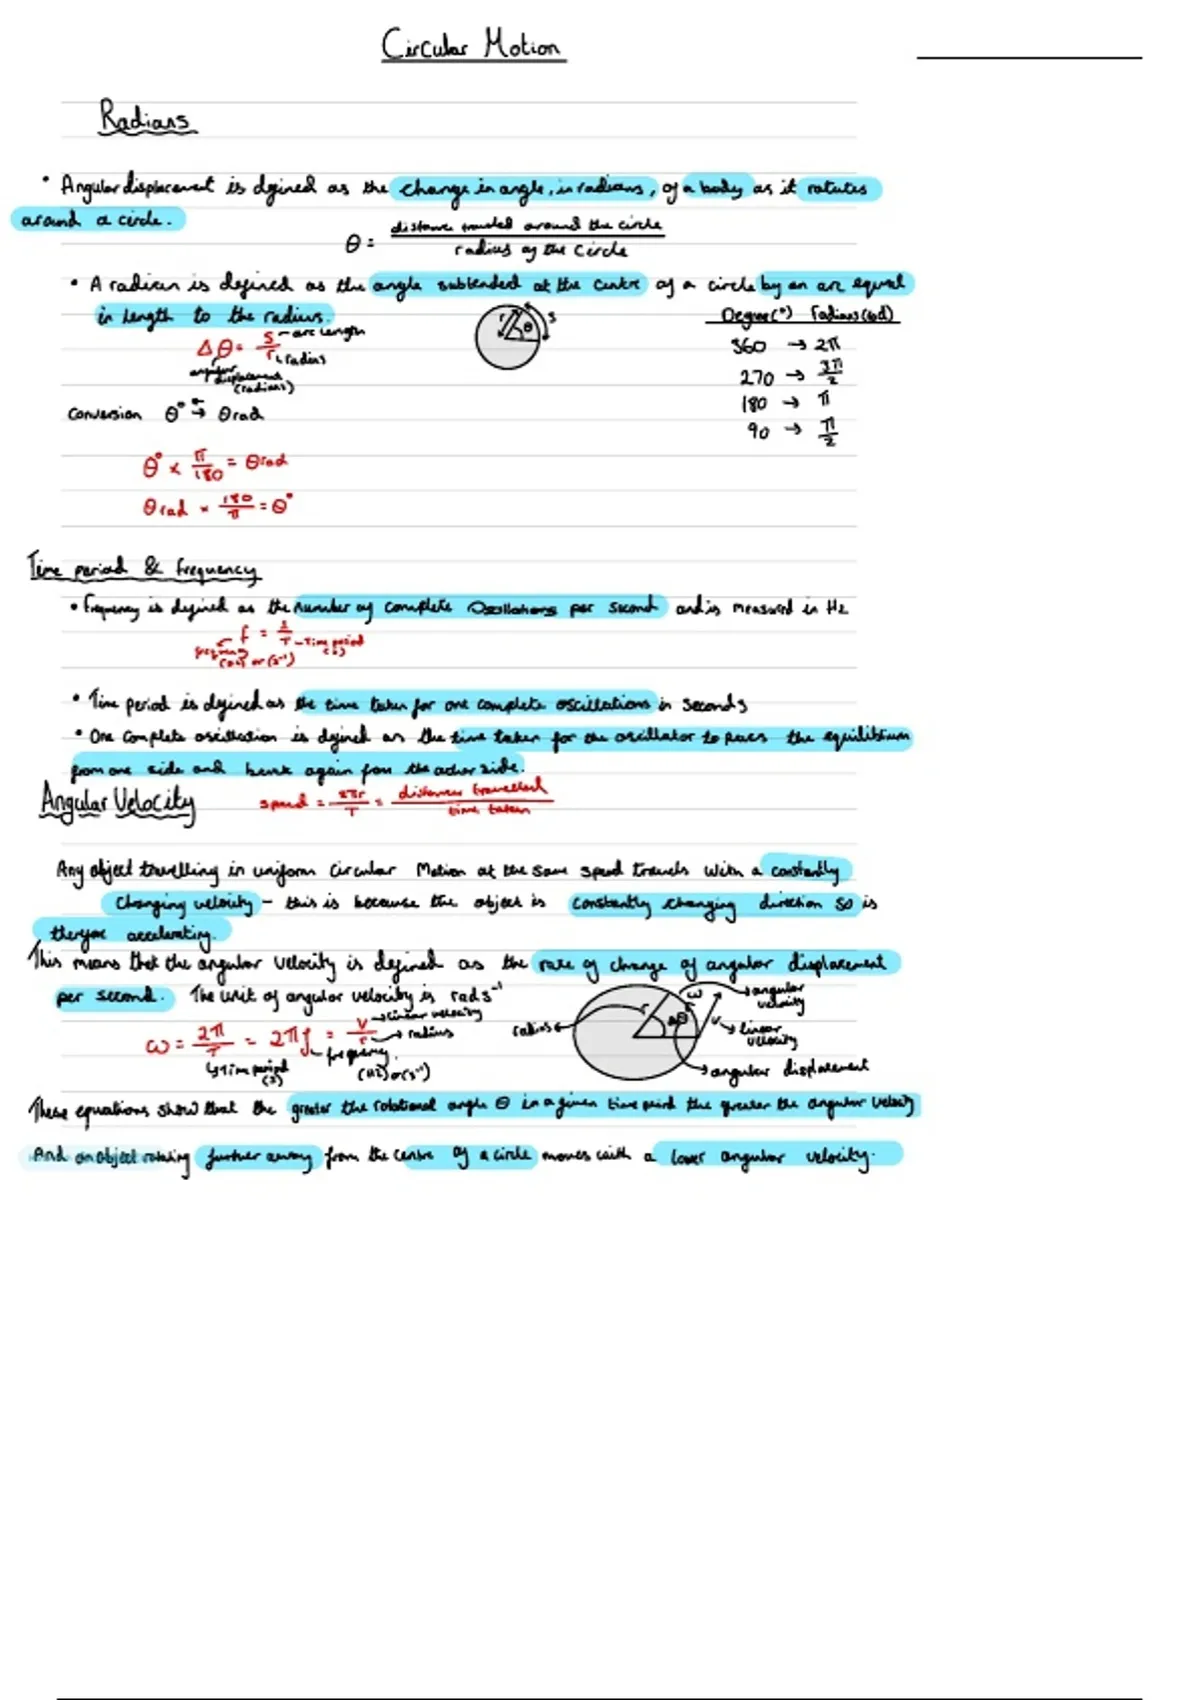 Circular Motion
Radians
• Angular displacement is defined as the change in angle, in radians, of a body as it rotates
around a circle.
θ = distance travelled around the circle / radius of the circle
• A radian is defined as the angle subtended at the centre of a circle by an arc equal
in length to the radius.
Degree(°) radians(rad)
Δθ = s/r
arc length
radius
angular displacement (radians)
r θ s
360 → 2π
270 → 3π/2
180 → π
90 → π/2
Conversion θ° ⇄ θrad
θ° × π/180 = θrad
θrad × 180/π = θ°
Time period & frequency
• Frequency is defined as the number of complete oscillations per second and is measured in Hz
f = 1/T
Time period (s)
frequency (Hz) or (s⁻¹)
• Time period is defined as the time taken for one complete oscillations in seconds
• One complete oscillation is defined as the time taken for the oscillator to pass the equilibrium
from one side and back again from the other side.
Angular Velocity
speed = 2πr/T = distance travelled / time taken
Any object travelling in uniform circular Motion at the same speed travels with a constantly
changing velocity – this is because the object is constantly changing direction so is
therefore accelerating.
This means that the angular velocity is defined as the rate of change of angular displacement
per second. The unit of angular velocity is rads⁻¹
ω = 2π/T = 2πf = v/r
linear velocity
radius
Time period (s)
frequency (Hz) or (s⁻¹)
radius
r Δθ ω v
angular velocity
linear velocity
angular displacement
These equations show that the greater the rotational angle θ in a given time period the greater the angular velocity
And an object rotating further away from the centre of a circle moves with a lower angular velocity.